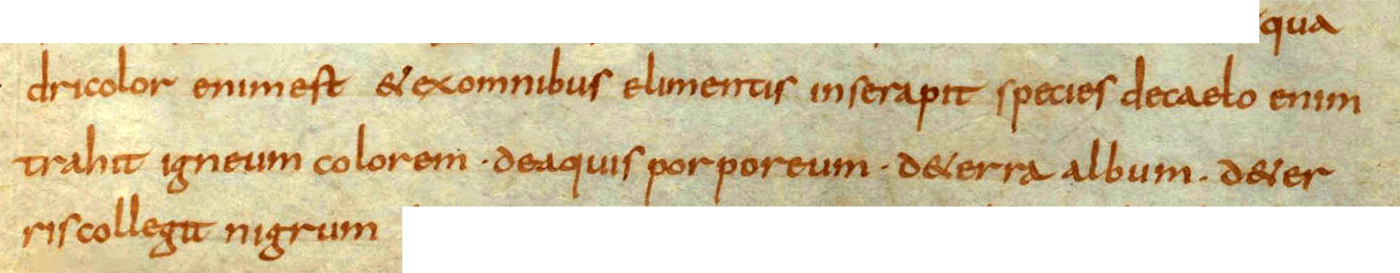 qua
dricolor enim est & ex omnibus elimentis in se rapit species de caelo enim
trahit igneum colorem · de aquis porporeum · d&erra album · d&er
ris collegit nigrum